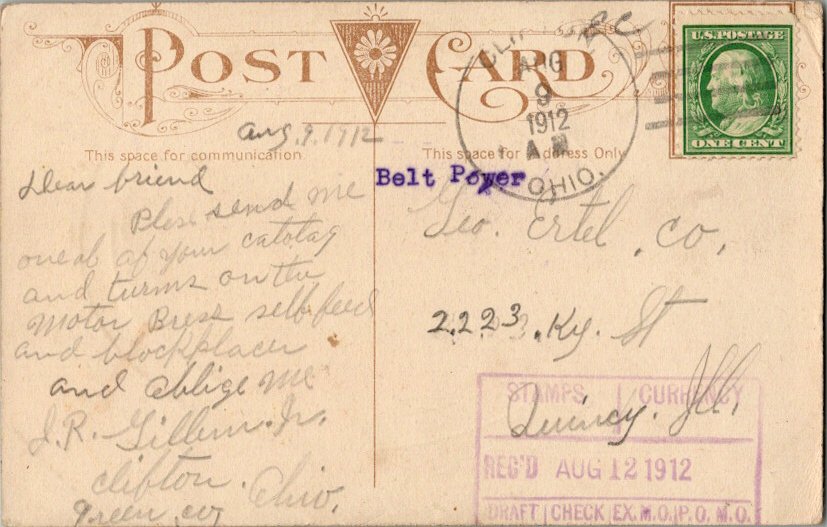 POST CARD
This space for communication.
This space for Address Only
U.S. POSTAGE
ONE CENT
AUG
9
1912
A M
OHIO.
Belt Power
Aug. 9. 1912
Dear friend
Plese send me
one of your catolag
and turms on the
Motor Press selbfeed
and blockplacer
and ablige me
J.R. Gillem. Jr.
Clifton. Ohio.
Green, co
Geo. Ertel. co,
2223. Ky. St
Quincy. Ill.
STAMPS CURRENCY
REC'D AUG 12 1912
DRAFT CHECK EX. M.O. P.O. M.O.